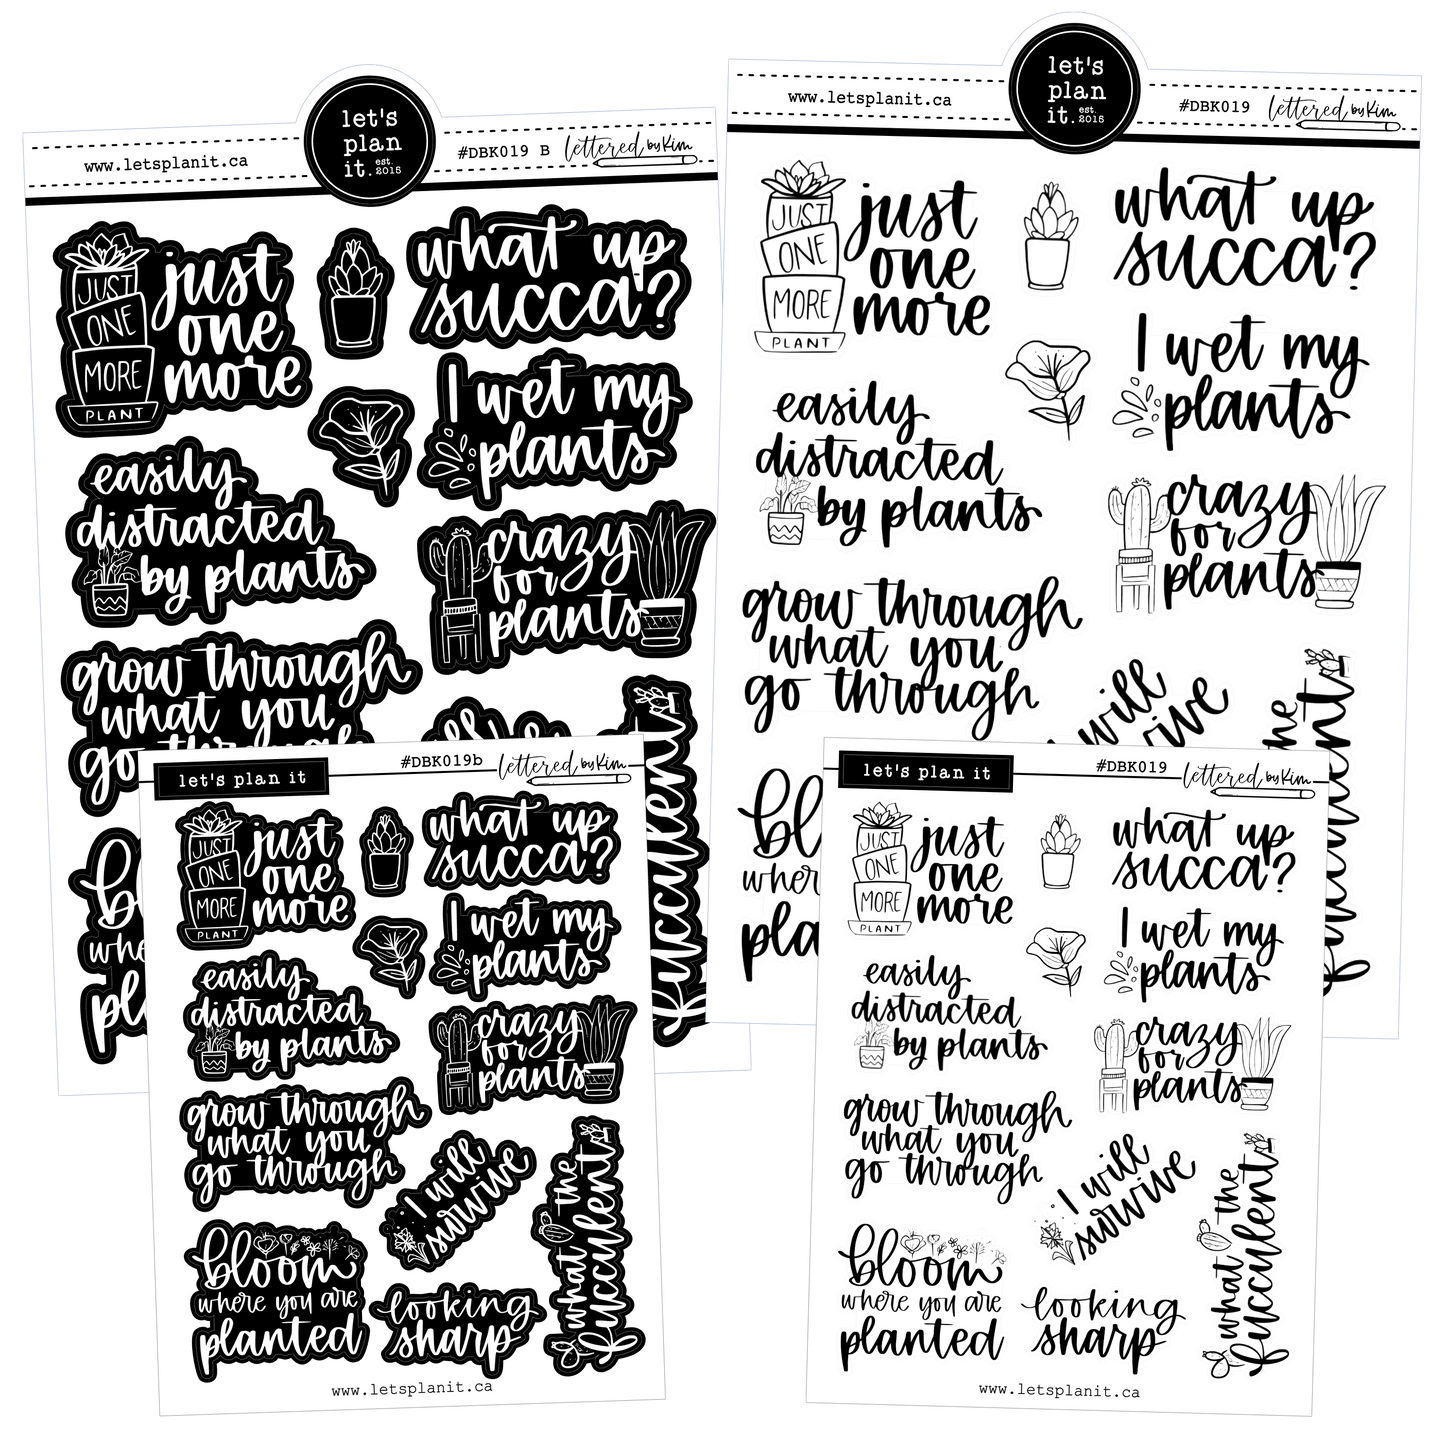 let's
plan
it. est. 2015
www.letsplanit.ca
#DBK019 B
lettered by Kim
JUST
ONE
MORE
PLANT
just
one
more
what up
succa?
I wet my
plants
easily
distracted
by plants
crazy
for
plants
grow through
what you
go through
succulent
let's
plan
it. est. 2015
www.letsplanit.ca
#DBK019
lettered by Kim
JUST
ONE
MORE
PLANT
just
one
more
what up
succa?
I wet my
plants
easily
distracted
by plants
crazy
for
plants
grow through
what you
go through
will
let's plan it
#DBK019b
lettered by Kim
JUST
ONE
MORE
PLANT
just
one
more
what up
succa?
I wet my
plants
easily
distracted
by plants
crazy
for
plants
grow through
what you
go through
I will
survive
what the
fucculent
bloom
where you are
planted
looking
sharp
www.letsplanit.ca
let's plan it
#DBK019
lettered by Kim
JUST
ONE
MORE
PLANT
just
one
more
what up
succa?
I wet my
plants
easily
distracted
by plants
crazy
for
plants
grow through
what you
go through
I will
survive
what the
fucculent
bloom
where you are
planted
looking
sharp
www.letsplanit.ca